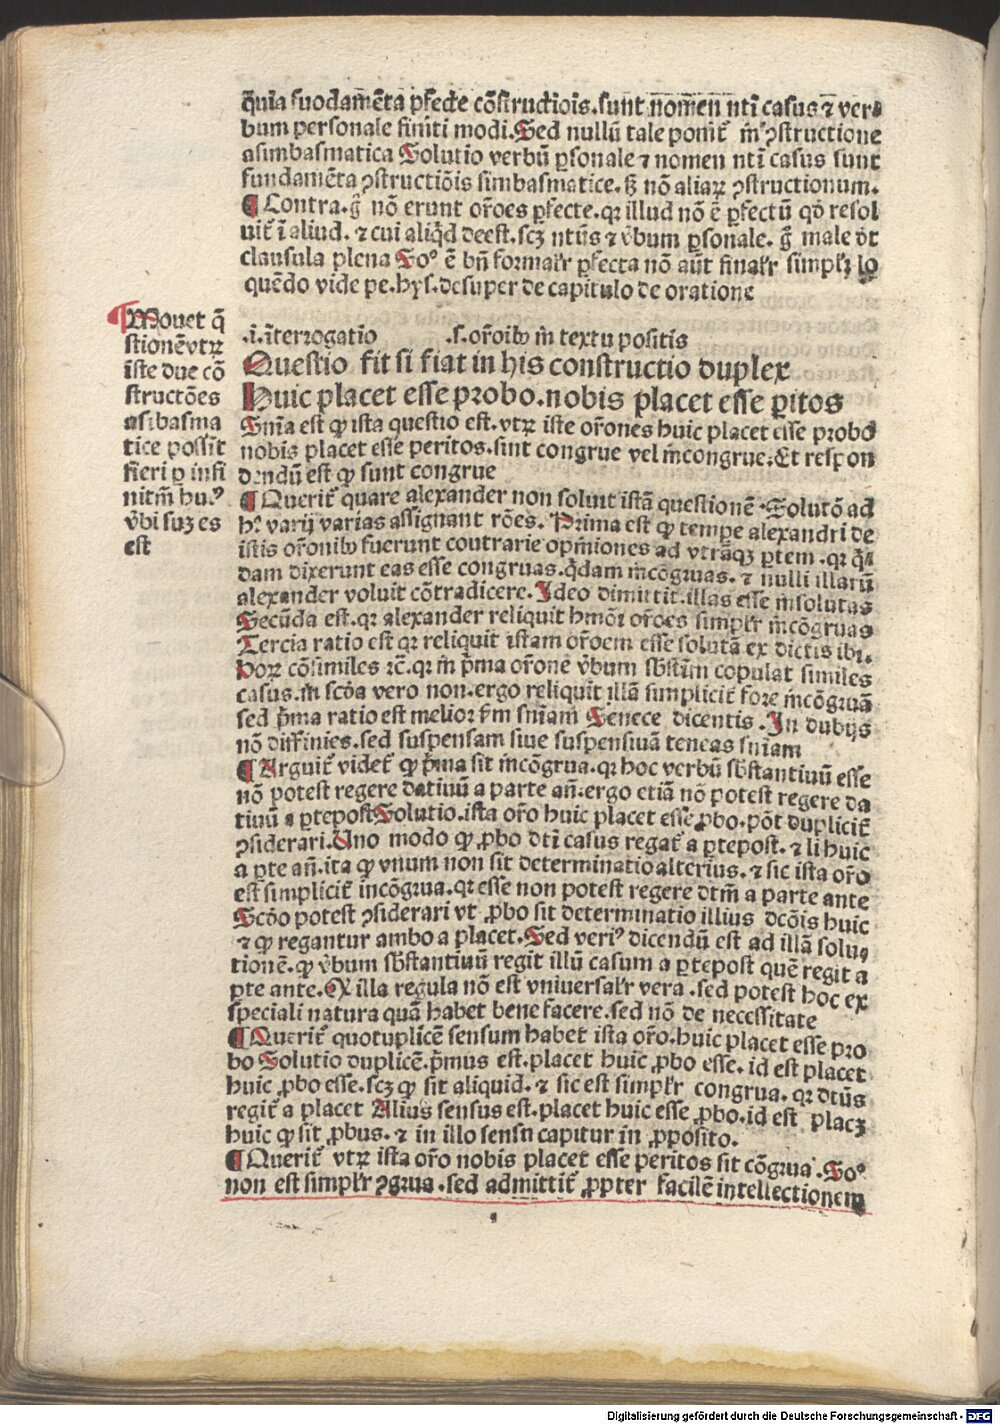 q̄uia fuodamēta ꝑfecte cōſtructiōis.ſunt nomen ntī caſus ⁊ ver⸗
bum perſonale finiti modi.Sed nullū tale ponit᷑ in ꝯſtructione
aſimbaſmatica Solutio verbū ꝑſonale ⁊ nomen ntī caſus ſunt
fundamēta ꝯſtructiōis ſimbaſmatice.ſꝫ nō aliaꝝ ꝯſtructionum.
¶ Contra.ḡ nō erunt or̄oes ꝑfecte.qꝛ illud nō ē ꝑfectū qd̄ reſol
uit᷑ ī aliud.⁊ cui aliqd̄ deeſt.ſcꝫ ntūs ⁊ v̄bum ꝑſonale. ḡ male dr̄
clauſula plena Soº ē bn̄ formalr̄ ꝑfecta nō aūt finalr̄ ſimplꝫ lo
quēdo vide pe.hyſ.deſuper de capitulo de oratione
¶Mouet q̄
ſtionēvtꝝ
iſte due cō
ſtructōes
aſibaſma
tice poſſīt
fieri ꝑ infi
nitm̄ huꝰ
v̄bi ſuꝫ es
eſt
.i.īterrogatio .ſ.or̄oibꝰ in textu poſitis
Queſtio fit ſi fiat in his conſtructio duplex
Huic placet eſſe probo.nobis placet eſſe ꝑitos
Sn̄ia eſt ꝙ iſta queſtio eſt.vtꝝ iſte or̄ones huic placet eſſe probo
nobis placet eſſe peritos.ſint congrue vel incongrue.Et reſpon
dendū eſt ꝙ ſunt congrue
¶ Querit᷑ quare alexander non ſoluit iſtā queſtionē .Solutō ad
hº varij varias aſſignant rōes. Prima eſt ꝙ tempe alexandri de
iſtis or̄onibꝰ fuerunt contrarie opiniones ad vtrāqꝫ ꝑtem .qꝛ q̄
dam dixerunt eas eſſe congruas.q̄dam incōgruas. ⁊ nulli illarū
alexander voluit cōtradicere. Ideo dimittit.illas eſſe inſolutas
Secūda eſt.qꝛ alexander reliquit hmōi or̄oes ſimplr̄ incōgruas
Tercia ratio eſt qꝛ reliquit iſtam or̄oem eſſe ſolutā ex dictis ibi.
Hoꝝ cōſimiles ⁊c̄.qꝛ in p̄ma or̄one v̄bum ſb̄ſtm̄ copulat ſimiles
caſus.in ſcd̄a vero non.ergo reliquit illā ſimplicit᷑ fore incōgruā
ſed p̄ma ratio eſt melior ẜm ſniam Senece dicentis .In dubijs
nō diffinies.ſed ſuſpenſam ſiue ſuſpenſiuā teneas ſniam
¶ Arguit᷑ videt᷑ ꝙ p̄ma ſit incōgrua.qꝛ hoc verbū ſb̄ſtantiuū eſſe
nō poteſt regere datiuū a parte an̄.ergo etiā nō poteſt regere da
tiuū a ꝑtepoſt Solutio.iſta or̄o huic placet eſſe ꝓbo.pōt duplicit᷑
ꝯſiderari.Uno modo ꝙ ꝓbo dtī caſus regat᷑ a ꝑtepoſt.⁊ li huic
a ꝑte an̄.ita ꝙ vnum non ſit determinatio alterius.⁊ ſic iſta or̄o
eſt ſimplicit᷑ incōgrua.qꝛ eſſe non poteſt regere dtm̄ a parte ante
Scd̄o poteſt ꝯſiderari vt ꝓbo ſit determinatio illius dcōis huic
⁊ ꝙ regantur ambo a placet.Sed veriꝰ dicendū eſt ad illā ſolu⸗
tionē.ꝙ v̄bum ſb̄ſtantiuū regit illū caſum a ꝑtepoſt quē regit a
ꝑte ante.Qꝛ illa regula nō eſt vniuerſalr̄ vera .ſed poteſt hoc ex
ſpeciali natura quā habet bene facere.ſed nō de neceſſitate
¶ Querit᷑ quotuplicē ſenſum habet iſta or̄o.huic placet eſſe pro
bo Solutio duplicē.p̄mus eſt.placet huic ꝓbo eſſe. id eſt placet
huic ꝓbo eſſe.ſcꝫ ꝙ ſit aliquid.⁊ ſic eſt ſimplr̄ congrua. qꝛ dtūs
regit᷑ a placet Alius ſenſus eſt.placet huic eſſe ꝓbo.id eſt placꝫ
huic ꝙ ſit ꝓbus.⁊ in illo ſenſu capitur in ꝓpoſito.
¶ Querit᷑ vtꝝ iſta or̄o nobis placet eſſe peritos ſit cōgrua.Soº
non eſt ſimplr̄ ꝯgrua.ſed admittit᷑ ꝓpter facilē intellectionem
Digitalisierung gefördert durch die Deutsche Forschungsgemeinschaft - DFG